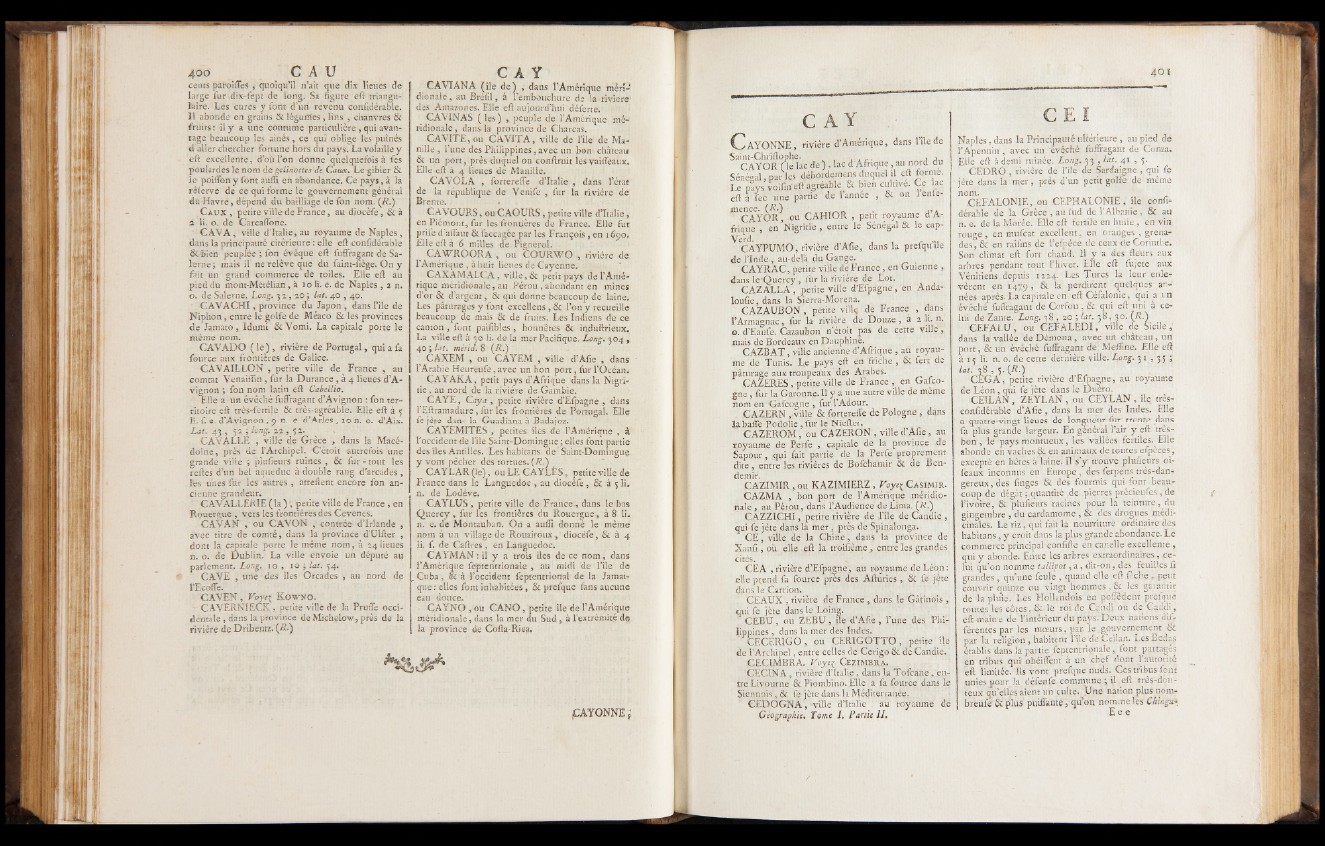 400 CAU
cents paroisses, quoiqu'il n'ait que dix lieues de
large sur dix-sept de long. Sa figure est triangu-
laire. Les cures y sont d'un revenu considérable.
Il abonde en grains & légumes, lins, chanvres &
fruits: il y a une coutume particulière, qui avan-
tage beaucoup les aînés, ce qui oblige les puinés
d'aller chercher fortune hors du pays. La volaille y
est excellente, d'où l'on donne quelquefois à ses
poulardes le nom de gelinottes de Caux. Le gibier &
le poisson y sont aussi en abondance. Ce pays, à la
réserve de ce qui forme le gouvernement général
du Havre, dépend du bailliage de son nom. (R.)
CAUX, petite ville de France, au diocèse, & à
2 li. o. de Carcassone.
CAVA, ville d'Italie, au royaume de Naples,
dans la principauté citérieure: elle est considérable
& bien peuplée: son évêque est suffragant de Sa-
lerne; mais il ne relève que du saint-siège. On y
fait un grand commerce de toiles. Elle est au
pied du mont-Métélian, à 10 li. e. de Naples, 2 n.
o. de Salerne. Long. 32, 20; lat. 40, 40.
CAVACHI, province du Japon, dans l'île de
Niphon, entre le golfe de Méaco & les provinces
de Jamato, Idumi & Vomi. La capitale porte le
même nom.
CAVADO (le), rivière de Portugal, qui a sa
source aux frontières de Galice.
CAVAILLON, petite ville de France, au
comtat Venaissin, sur la Durance, à 4 lieues d'A-
vignon; son nom latin est Cabellio.
Elle a un évêché suffragant d'Avignon: son ter-
ritoire est très-fertile & très-agréable. Elle est à 5
li. s. e. d'Avignon, 9 n. e. d'Arles, 10 n. o. d'Aix.
Lat. 43, 52; long. 22, 52.
CAVALLE, ville de Grèce, dans la Macé-
doine, près de l'Archipel. C'étoit autrefois une
grande ville; plusieurs ruines, & sur-tout les
restes d'un bel aqueduc à double rang d'arcades,
les unes sur les autres, attestent encore son an-
cienne grandeur.
CAVALLERIE (la); petite ville de France, en
Rouergue, vers les frontières des Cevenes.
CAVAN, ou CAVON, contrée d'Irlande,
avec titre de comté, dans la province d'Ulster,
dont la capitale porte le même nom, à 24 lieues
n. o. de Dublin. La ville envoie un député au
parlement. Long. 10, 10; lat. 54.
CAVE, une des îles Orcades, au nord de
l'Ecosse.
CAVEN, Voyez KOWNO.
CAVERNIECK, petite ville de la Prusse occi-
dentale, dans la province de Michelow, près de la
rivière de Dribentz. (R.)
CAY
CAVIANA (île de), dans l'Amérique méri-
dionale, au Brésil, à l'embouchure de la rivière
des Amazones. Elle est aujourd'hui déserte.
CAVINAS (les), peuple de l'Amérique mé-
ridionale, dans la province de Charcas.
CAVITE, ou CAVITA, ville de l'île de Ma-
nille, l'une des Philippines, avec un bon château
& un port, près duquel on construit les vaisseaux.
Elle est à 4 lieues de Manille.
CAVOLA, forteresse d'Italie, dans l'état
de la république de Venise, sur la rivière de
Brento.
CAVOURS, ou CAOURS, petite ville d'Italie,
en Piémont, sur les frontières de France. Elle fut
prise d'assaut & saccagée par les François, en 1690.
Elle est à 6 milles de Pignerol.
CAWROORA, ou COURWO, rivière de
l'Amérique, à huit lieues de Cayenne.
CAXAMALCA, ville, & petit pays de l'Amé-
rique méridionale, au Pérou, abondant en mines
d'or & d'argent, & qui donne beaucoup de laine.
Les pâturages y sont excellens, & l'on y recueille
beaucoup de maïs & de fruits. Les Indiens de ce
canton, sont paisibles, honnêtes & industrieux.
La ville est à 50 li. de la mer Pacifique. Long. 304,
40; lat. mérid. 8 (R.)
CAXEM, ou CAYEM, ville d'Asie, dans
l'Arabie Heureuse, avec un bon port, sur l'Océan.
CAYAKA, petit pays d'Afrique dans la Nigri-
tie, au nord de la rivière de Gambie.
CAYE, Caya, petite rivière d'Espagne, dans
l'Estramadure, sur les frontières de Portugal. Elle
se jète dans la Guadiana à Badajoz.
CAYEMITES, petites îles de l'Amérique, à
l'occident de l'île Saint-Domingue; elles font partie
des îles Antilles. Les habitans de Saint-Domingue
y vont pêcher des tortues. (R.)
CAYLAR (le), ou LE CAYLÈS, petite ville de
France dans le Languedoc, au diocèse, & à 5 li.
n. de Lodève.
CAYLUS, petite ville de France, dans le bas
Quercy, sur les frontières du Rouergue, à 8 li.
n. e. de Montauban. On a aussi donné le même
nom à un village de Rouairoux, diocèse, & à 4
li. s. de Castres, en Languedoc.
CAYMAN: il y a trois îles de ce nom, dans
l'Amérique septentrionale, au midi de l'île de
Cuba, & à l'occident septentrional de la Jamaï-
que: elles sont inhabitées, & presque sans aucune
eau douce.
CAYNO, ou CANO, petite île de l'Amérique
méridionale, dans la mer du Sud, à l'extrémité de
la province de Costa-Rica.
CAYONNE;
401
CAY
CAYONNE, rivière d'Amérique, dans l'île de
Saint-Christophe.
CAYOR (le lac de), lac d'Afrique, au nord du
Sénégal, par les débordemens duquel il est formé.
Le pays voisin est agréable & bien cultivé. Ce lac
est à sec une partie de l'année, & on l'ense-
mence. (R.)
CAYOR, ou CAHIOR, petit royaume d'A-
frique, en Nigritie, entre le Sénégal & le cap-
Verd.
CAYPUMO, rivière d'Asie, dans la presqu'île
de l'Inde, au-delà du Gange.
CAYRAC, petite ville de France, en Guienne,
dans le Quercy, sur la rivière de Lot.
CAZALLA, petite ville d'Espagne, en Anda-
lousie, dans la Sierra-Morena.
CAZAUBON, petite ville de France, dans
l'Armagnac, sur la rivière de Douze, à 2 li. n.
o. d'Eause. Cazaubon n'étoit pas de cette ville,
mais de Bordeaux en Dauphiné.
CAZBAT, ville ancienne d'Afrique, au royau-
me de Tunis. Le pays est en friche, & sert de
pâturage aux troupeaux des Arabes.
CAZERES, petite ville de France, en Gasco-
gne, sur la Garonne. Il y a une autre ville de même
nom en Gascogne, sur l'Adour.
CAZERN, ville & forteresse de Pologne, dans
la basse Podolie, sur le Niester.
CAZEROM, ou CAZERON, ville d'Asie, au
royaume de Perse, capitale de la province de
Sapour, qui fait partie de la Perse proprement
dite, entre les rivières de Boschamir & de Ben-
demir.
CAZIMIR, ou KAZIMIERZ, Voyez CASIMIR.
CAZMA, bon port de l'Amérique méridio-
nale, au Pérou, dans l'Audience de Lima. (R.)
CAZZICHI, petite rivière de l'île de Candie,
qui se jète dans la mer, près de Spinalonga.
CE, ville de la Chine, dans la province de
Xansi, où elle est la troisième, entre les grandes
cités.
CEA, rivière d'Espagne, au royaume de Léon:
elle prend sa source près des Asturies, & se jète
dans le Carrion.
CEAUX, rivière de France, dans le Gâtinois,
qui se jète dans le Loing.
CEBU, ou ZEBU, île d'Asie, l'une des Phi-
lippines, dans la mer des Indes.
CECERIGO, ou CERIGOTTO, petite île
de l'Archipel, entre celles de Cerigo & de Candie.
CECIMBRA. Voyez CEZIMBRA.
CECINA, rivière d'Italie, dans la Toscane, en-
tre Livourne & Piombino. Elle a sa source dans le
Siennois, & se jète dans la Méditerranée.
CEDOGNA, ville d'Italie au royaume de
Géographie. Tome I. Partie II.
CEI
Naples, dans la Principauté ultérieure, au pied de
l'Apennin, avec un évêché suffragant de Conza.
Elle est à demi ruinée. Long. 33, lat. 41, 5.
CEDRO, rivière de l'île de Sardaigne, qui se
jète dans la mer, près d'un petit golfe de même
nom.
CEFALONIE, ou CEPHALONIE, île consi-
dérable de la Grèce, au sud de l'Albanie, & au
n. e. de la Morée. Elle est fertile en huile, en vin
rouge, en muscat excellent, en oranges, grena-
des, & en raisins de l'espèce de ceux de Corinthe.
Son climat est fort chaud. Il y a des fleurs aux
arbres pendant tout l'hiver. Elle est sujete aux
Vénitiens depuis 1224. Les Turcs la leur enle-
vèrent en 1479, & la perdirent quelques an-
nées après. La capitale en est Céfalonie, qui a un
évêché suffragant de Corfou, & qui est uni à ce-
lui de Zante. Long. 38, 20; lat. 38, 30. (R.)
CEFALU, ou CEFALEDI, ville de Sicile,
dans la vallée de Démona, avec un château, un
port, & un évêché suffragant de Messine. Elle est
à 15 li. n. o. de cette dernière ville. Long. 31, 35;
lat. 38, 5. (R.)
CEGA, petite rivière d'Espagne, au royaume
de Léon, qui se jète dans le Duéro.
CEILAN, ZEYLAN, ou CEYLAN, île très-
considérable d'Asie, dans la mer des Indes. Elle
a quatre-vingt lieues de longueur sur trente dans
sa plus grande largeur. En général l'air y est très-
bon, le pays montueux, les vallées fertiles. Elle
abonde en vaches & en animaux de toutes espèces,
excepté en bêtes à laine. Il s'y trouve plusieurs oi-
seaux inconnus en Europe, des serpens très-dan-
gereux, des singes & des fourmis qui font beau-
coup de dégât; quantité de pierres précieuses, de
l'ivoire, & plusieurs racines pour la teinture, du
gingembre, du cardamome, & des drogues médi-
cinales. Le riz, qui fait la nourriture ordinaire des
habitans, y croit dans la plus grande abondance. Le
commerce principal consiste en canelle excellente,
qui y abonde. Entre les arbres extraordinaires, ce-
lui qu'on nomme tallipot, a, dit-on, des feuilles si
grandes, qu'une seule, quand elle est sèche, peut
couvrir quinze ou vingt hommes, & les garantir
de la pluie. Les Hollandois en possèdent presque
toutes les côtes, & le roi de Candi ou de Cardi,
est maître de l'intérieur du pays. Deux nations dif-
férentes par les mœurs, par le gouvernement &
par la religion, habitent l'île de Ceilan. Les Bedas
établis dans la partie septentrionale, sont partagés
en tribus qui obéissent à un chef dont l'autorité
est limitée. Ils vont presque nuds. Ces tribus sont
unies pour la défense commune; il est très-dou-
teux qu'elles aient un culte. Une nation plus nom-
breuse & plus puissante, qu'on nomme les Chingu-
E e e